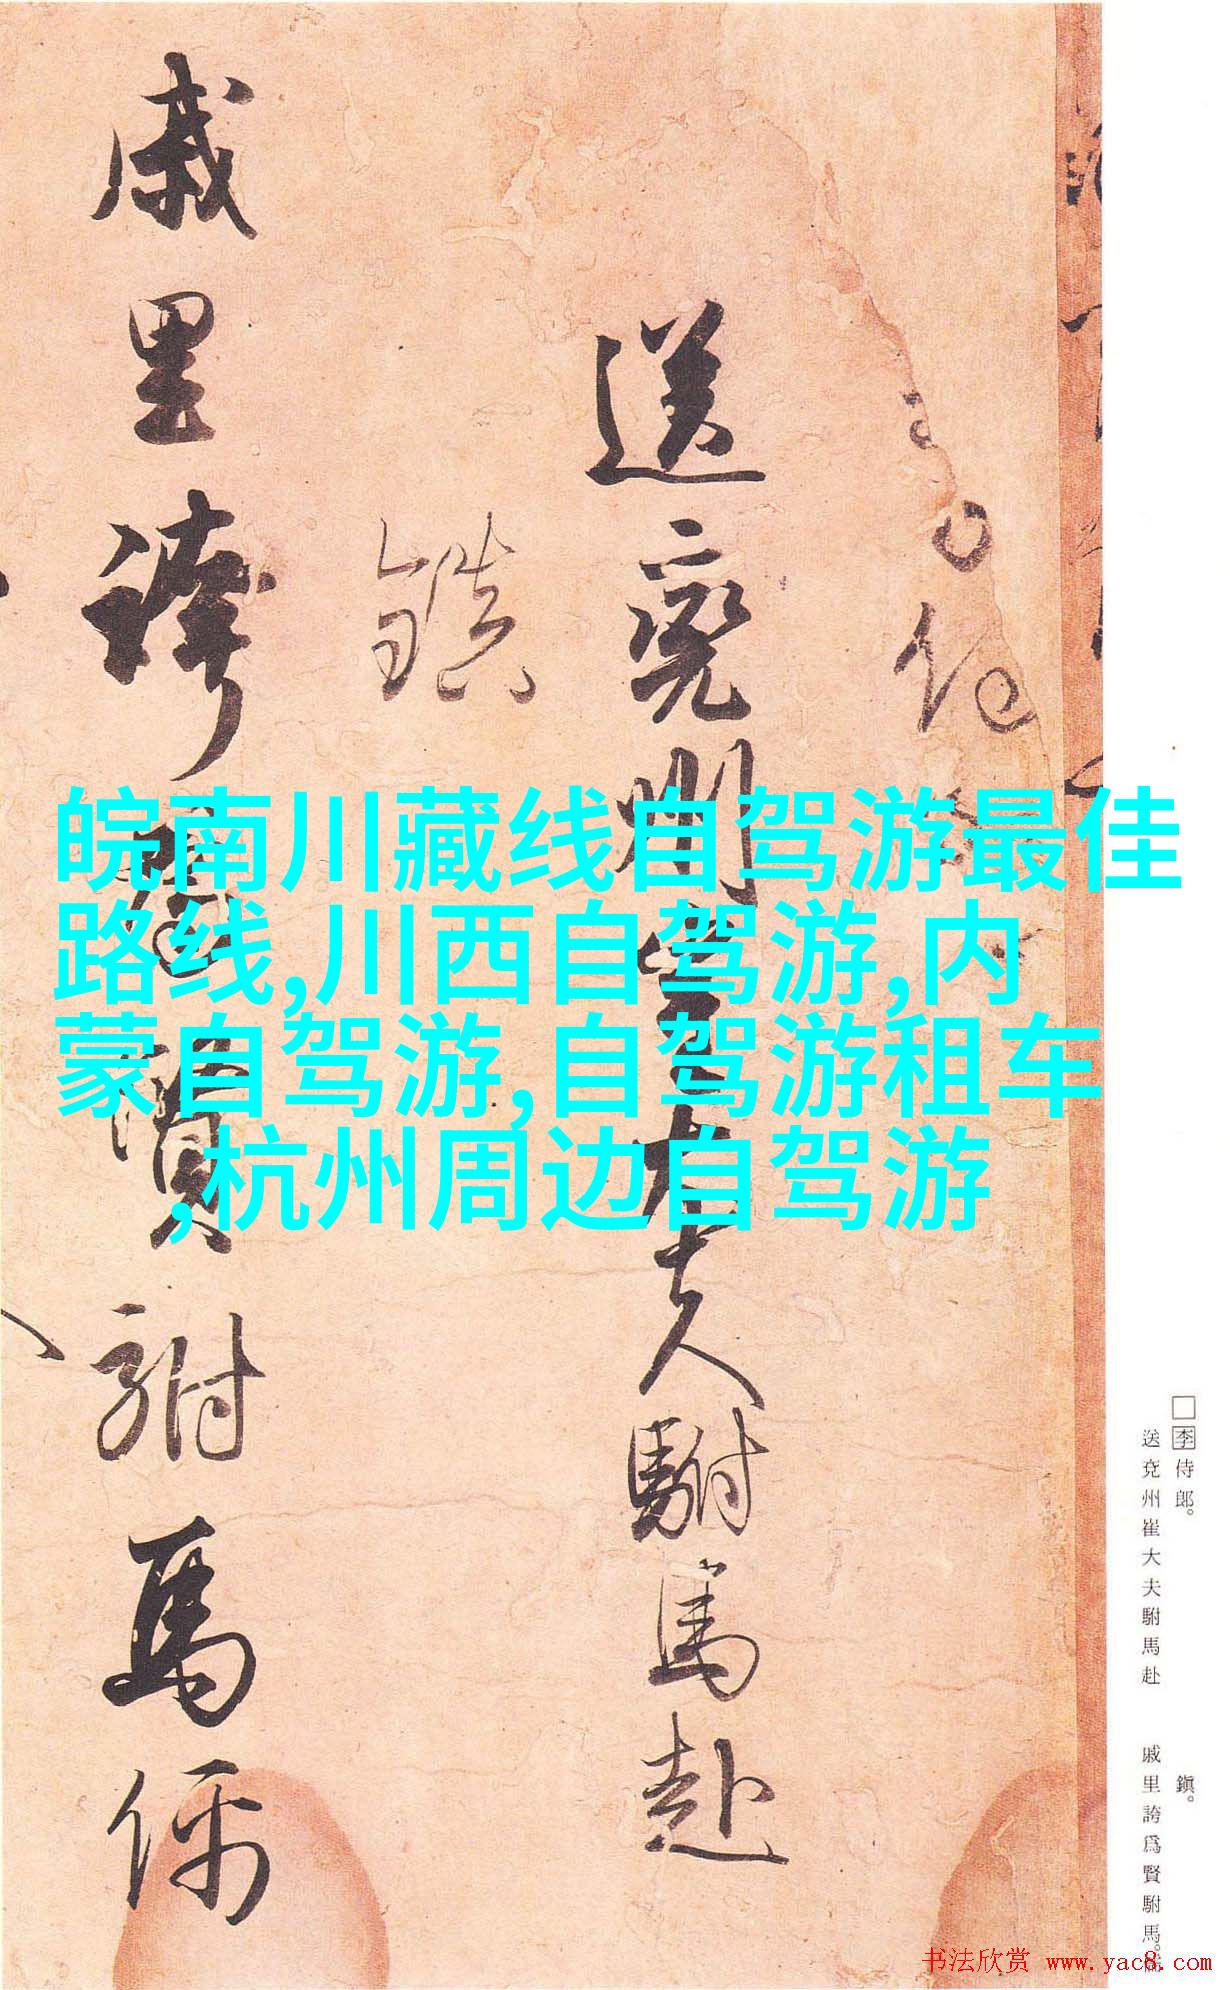 皖南川藏线自驾游最佳
路线,川西自驾游,内
蒙自驾游,自驾游租车
,杭州周边自驾游
送兖州崔大夫駙馬赴
鎮
戚里誇為賢駙馬儒
□李侍郎。
送兗州崔大夫駙馬赴
鎮。
戚里誇爲賢駙馬。儒
书法欣赏 www.yac8.com